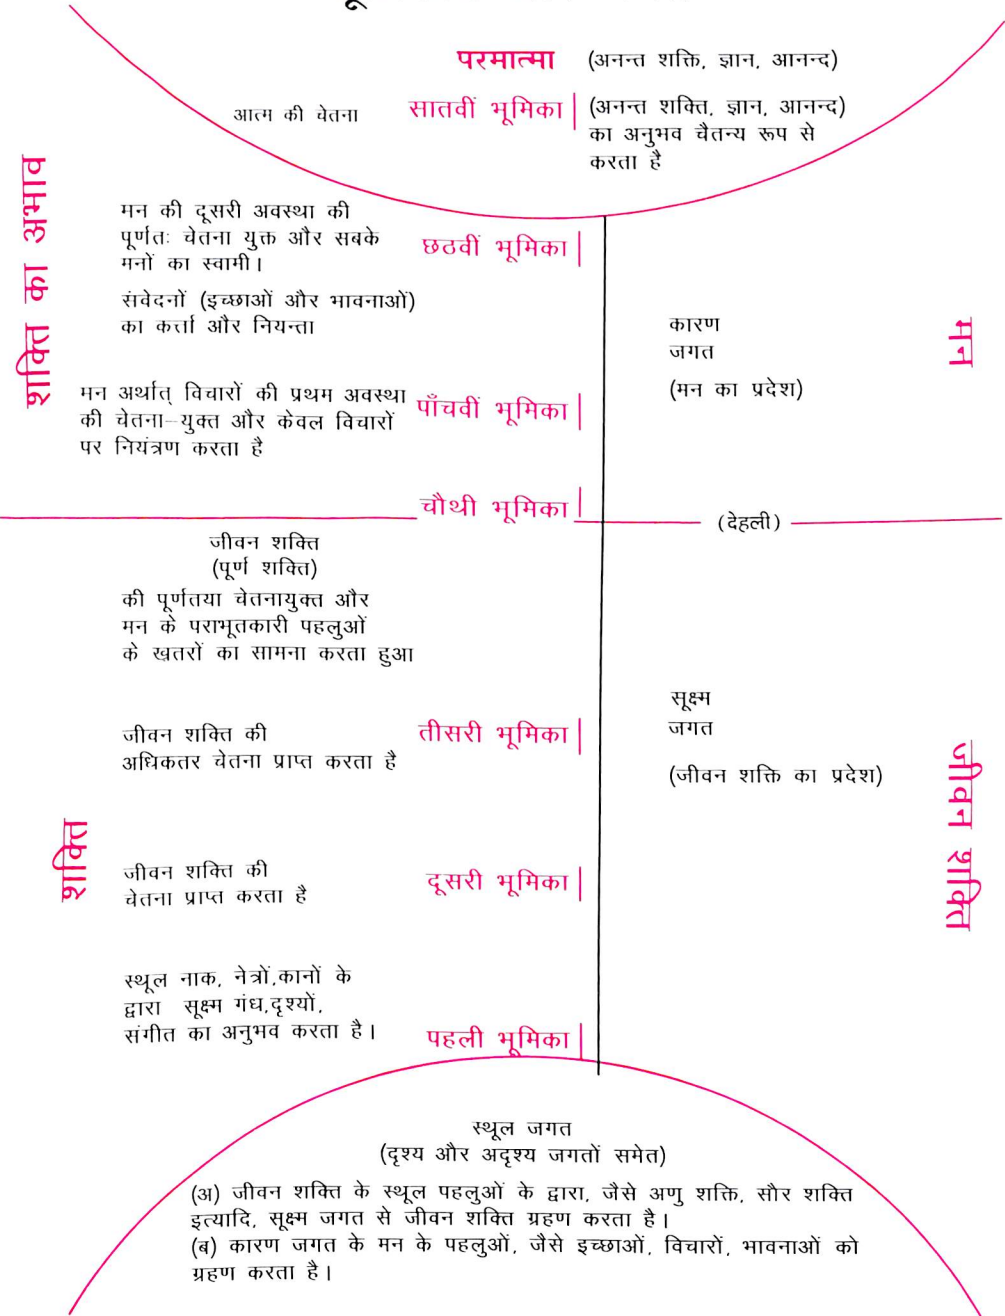 परमात्मा (अनन्त शक्ति, ज्ञान, आनन्द)
आत्म की चेतना सातवीं भूमिका (अनन्त शक्ति, ज्ञान, आनन्द)
का अनुभव चैतन्य रूप से
करता है
शक्ति का अभाव
मन की दूसरी अवस्था की
पूर्णतः चेतना युक्त और सबके
मनों का स्वामी।
छठवीं भूमिका
संवेदनों (इच्छाओं और भावनाओं)
का कर्त्ता और नियन्ता
कारण
जगत
(मन का प्रदेश)
मन
मन अर्थात् विचारों की प्रथम अवस्था
की चेतना-युक्त और केवल विचारों
पर नियंत्रण करता है
पाँचवीं भूमिका
चौथी भूमिका
(देहली)
जीवन शक्ति
(पूर्ण शक्ति)
की पूर्णतया चेतनायुक्त और
मन के पराभूतकारी पहलुओं
के खतरों का सामना करता हुआ
सूक्ष्म
जगत
(जीवन शक्ति का प्रदेश)
जीवन शक्ति
जीवन शक्ति की
अधिकतर चेतना प्राप्त करता है
तीसरी भूमिका
शक्ति
जीवन शक्ति की
चेतना प्राप्त करता है
दूसरी भूमिका
स्थूल नाक, नेत्रों,कानों के
द्वारा सूक्ष्म गंध,दृश्यों,
संगीत का अनुभव करता है।
पहली भूमिका
स्थूल जगत
(दृश्य और अदृश्य जगतों समेत)
(अ) जीवन शक्ति के स्थूल पहलुओं के द्वारा, जैसे अणु शक्ति, सौर शक्ति
इत्यादि, सूक्ष्म जगत से जीवन शक्ति ग्रहण करता है।
(ब) कारण जगत के मन के पहलुओं, जैसे इच्छाओं, विचारों, भावनाओं को
ग्रहण करता है।